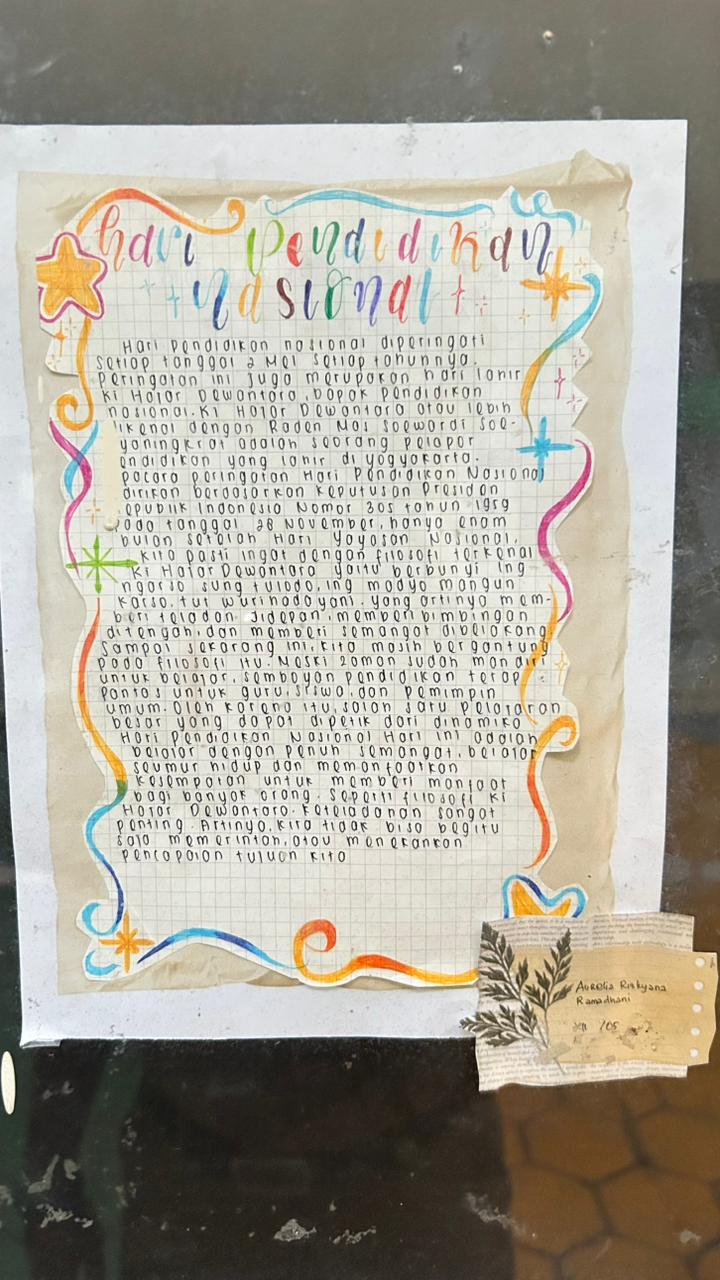 hari pendidikan
nasional
Hari pendidikan nasional diperingati
setiap tanggal 2 Mei setiap tahunnya.
Peringatan ini juga merupakan hari lahir
Ki Hajar Dewantara, bapak pendidikan
nasional. Ki Hajar Dewantara atau lebih
ikenal dengan Raden Mas Soewardi Soe-
yaningkrat adalah seorang pelapor
endidikan yang lahir di yogyakarta.
pacara peringatan Hari Pendidikan Nasional
dirikan berdasarkan keputusan Presiden
epublik Indonesia Nomor 305 tahun 1959
pada tanggal 28 November, hanya enam
bulan setelah Hari Yayasan Nasional.
Kita pasti ingat dengan filosofi terkenal
Ki Hajar Dewantara yaitu berbunyi Ing
ngarso sung tulodo, ing madyo mangun
karso, tut wuri hadayani. yang artinya mem-
beri teladan didepan, memberi bimbingan
ditengah, dan memberi semangat dibelakang.
Sampai sekarang ini, kita masih bergantung
pada filosofi itu. Meski zaman sudah mandiri
untuk belajar, semboyan pendidikan tetap
pantas untuk guru, siswa, dan pemimpin
umum. Oleh karena itu, salah satu pelajaran
besar yang dapat dipetik dari dinamika
Hari Pendidikan Nasional Hari ini adalah
belajar dengan penuh semangat, belajar
seumur hidup dan memanfaatkan
kesempatan untuk memberi manfaat
bagi banyak orang. Seperti filosofi Ki
Hajar Dewantara. Keteladanan sangat
penting. Artinya, kita tidak bisa begitu
saja memerintah, atau menekankan
pencapaian tujuan kita
Aurelia Riskyana
Ramadhani
/05